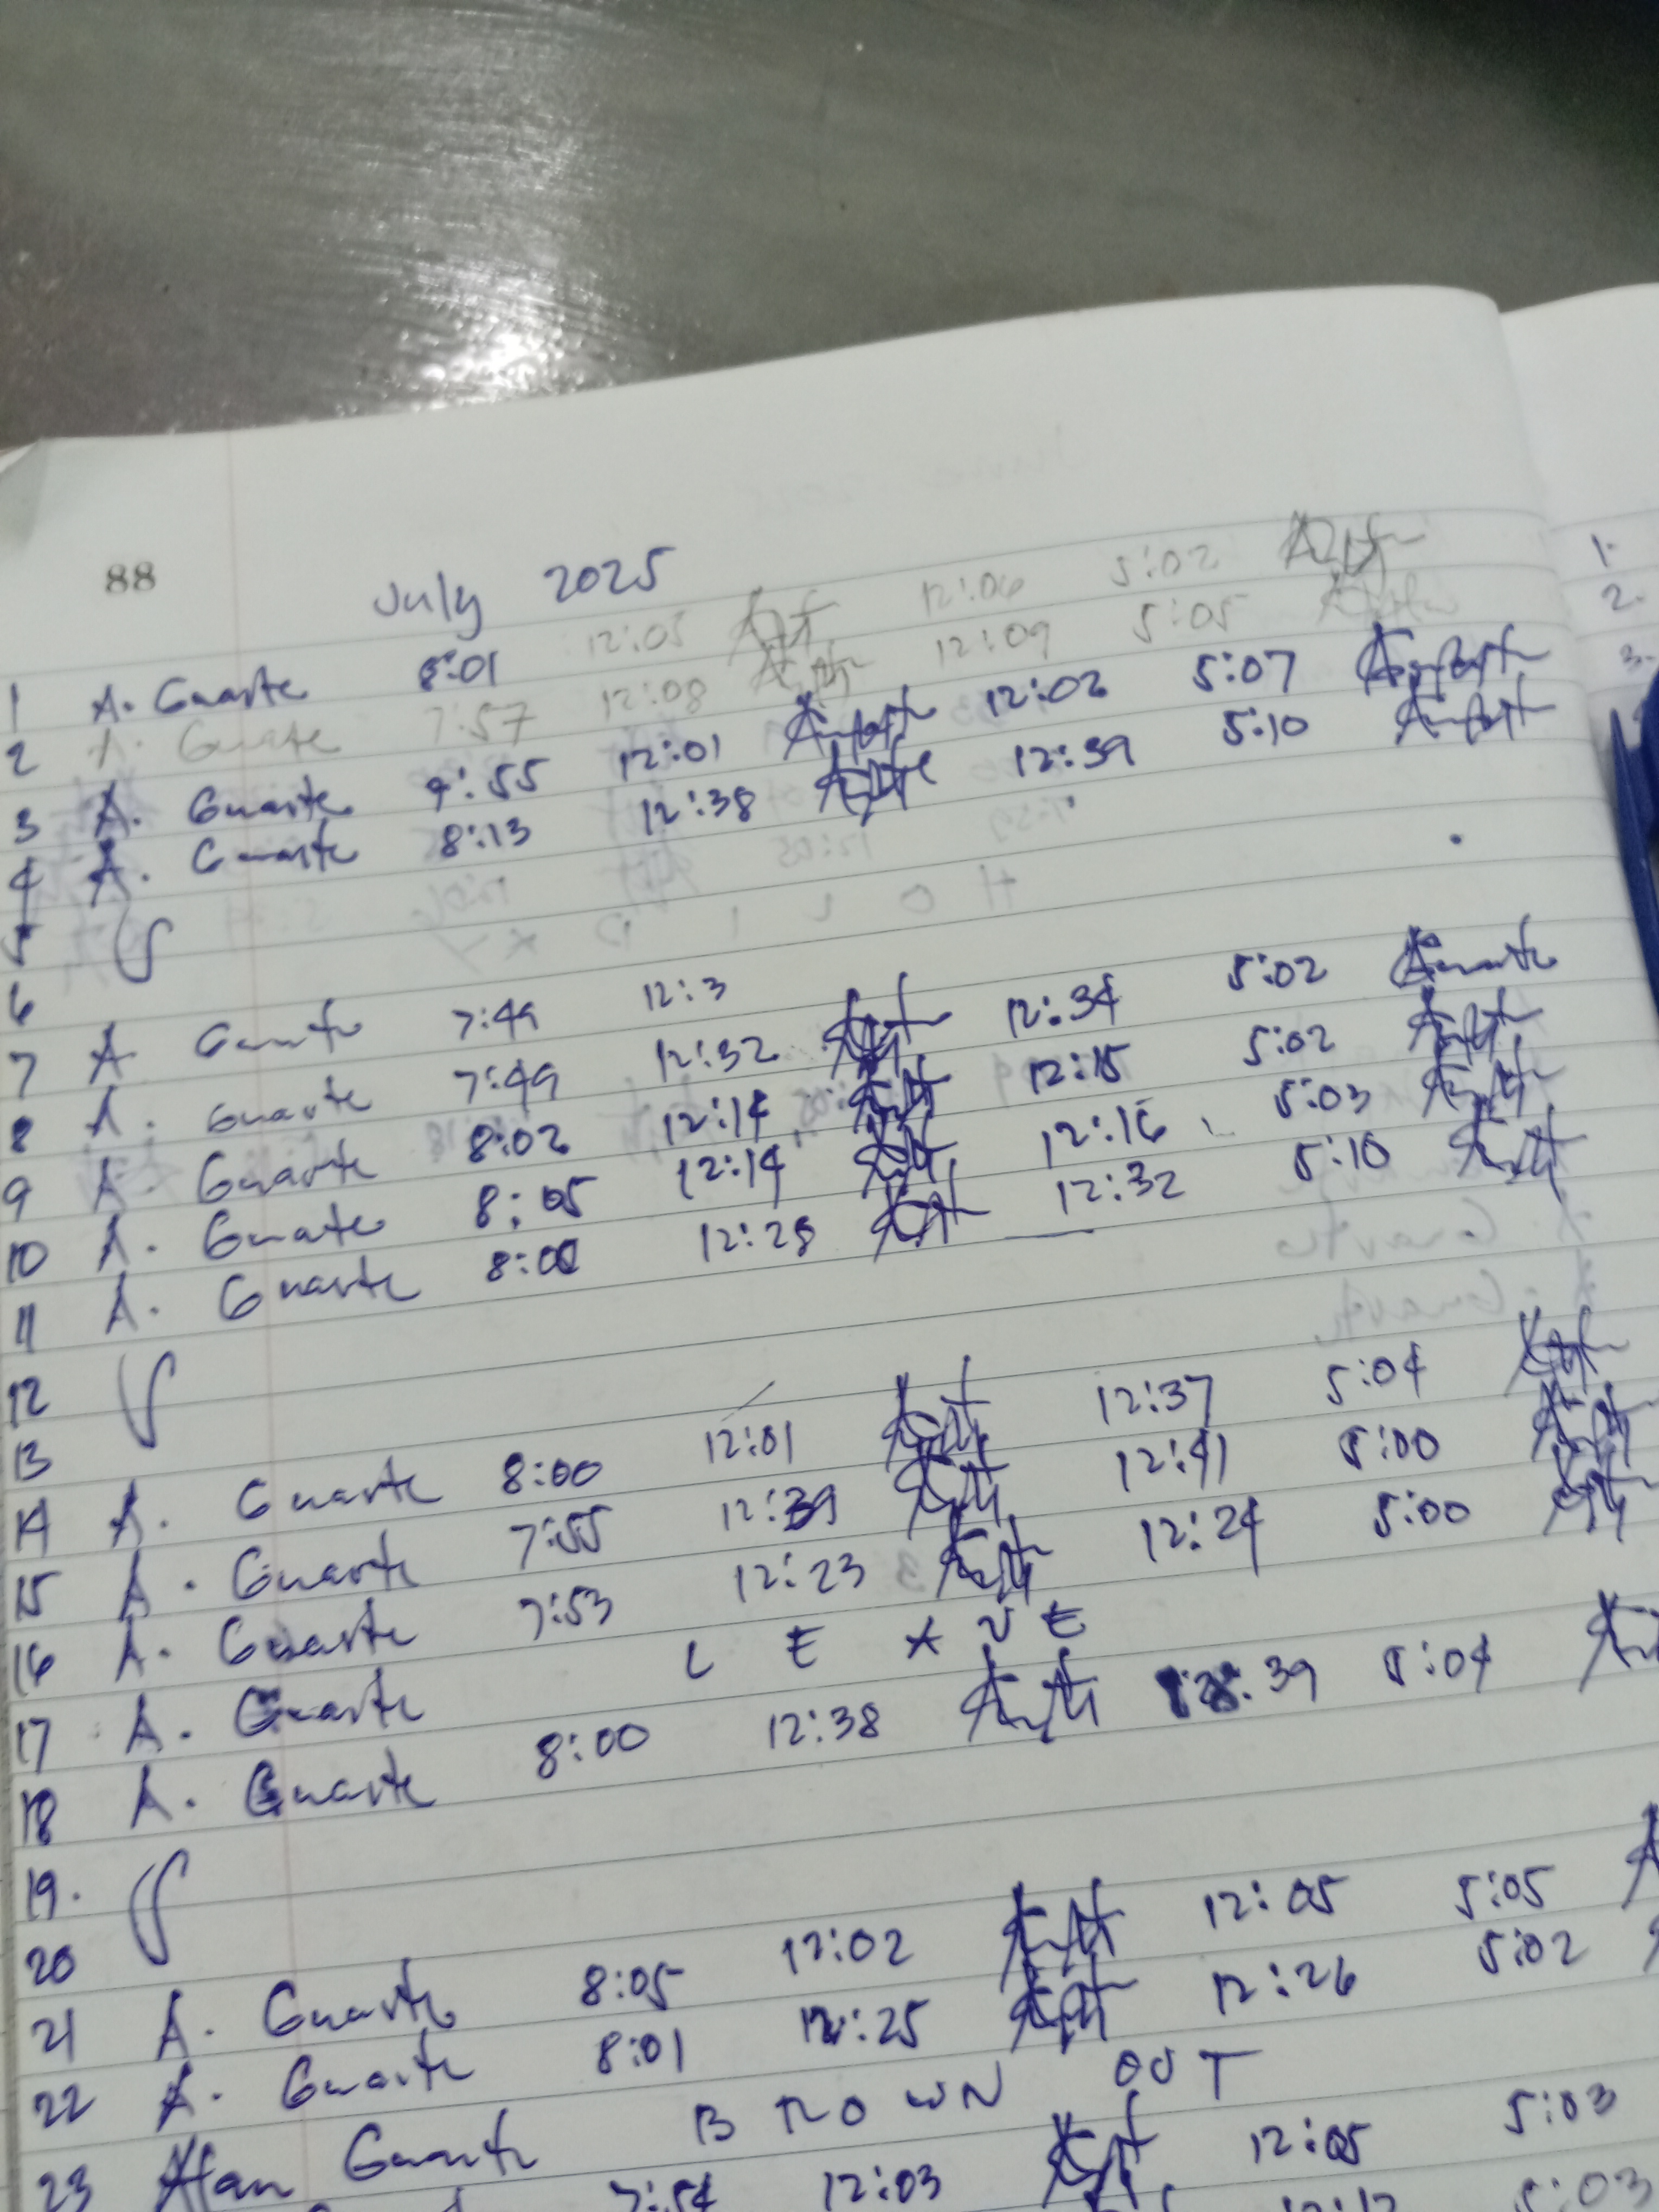 88 July 2025
1 A. Guarte 8:01 12:05 12:06 5:02
2 A. Guarte 7:57 12:08 12:09 5:05
3 A. Guarte 7:55 12:01 12:02 5:07
4 A. Guarte 8:13 12:38 12:39 5:10
5
6
7 A Guarte 7:49 12:3
8 A. Guarte 7:49 12:32 12:34 5:02
9 A. Guarte 8:02 12:14 12:15 5:02
10 A. Guarte 8:05 12:14 12:16 5:03
11 A. Guarte 8:00 12:28 12:32 5:10
12
13
14 A. Guarte 8:00 12:01 12:37 5:04
15 A. Guarte 7:55 12:39 12:41 5:00
16 A. Guarte 7:53 12:23 12:24 5:00
17 A. Guarte L E A V E
18 A. Guarte 8:00 12:38 12:39 5:04
19.
20
21 A. Guarte 8:05 12:02 12:05 5:05
22 A. Guarte 8:01 12:25 12:26 5:02
23 Alan Guarte B R O W N OUT
7:54 12:03 12:05 5:03
12:12 5:03
1.
2.
3.